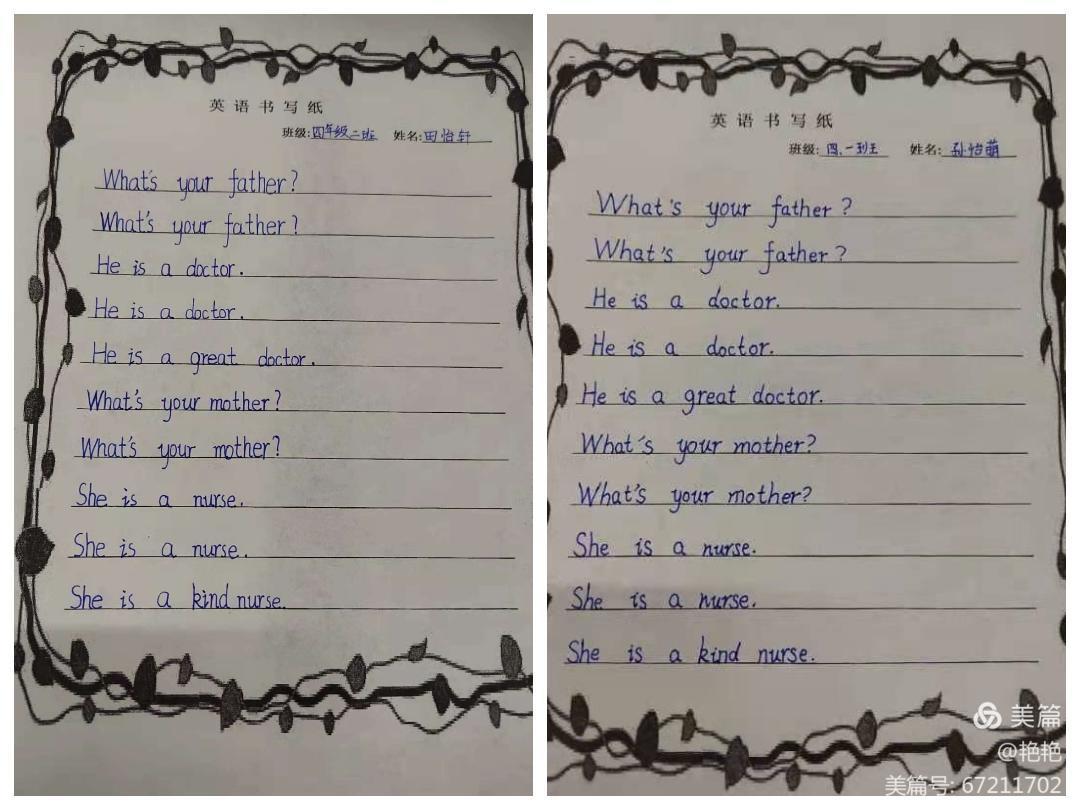 英语书写纸
班级:四年级二班 姓名:田怡轩
What's your father?
What's your father?
He is a doctor.
He is a doctor.
He is a great doctor.
What's your mother?
What's your mother?
She is a nurse.
She is a nurse.
She is a kind nurse.
英语书写纸
班级:四.一班 姓名:孙怡萌
What's your father?
What's your father?
He is a doctor.
He is a doctor.
He is a great doctor.
What's your mother?
What's your mother?
She is a nurse.
She is a nurse.
She is a kind nurse.
美篇
@艳艳
美篇号: 67211702